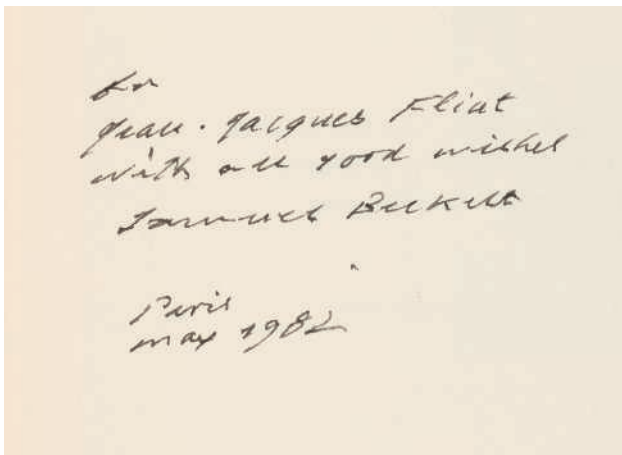 for
Jean-Jacques Fliat
with all good wishes
Samuel Beckett
Paris
may 1982